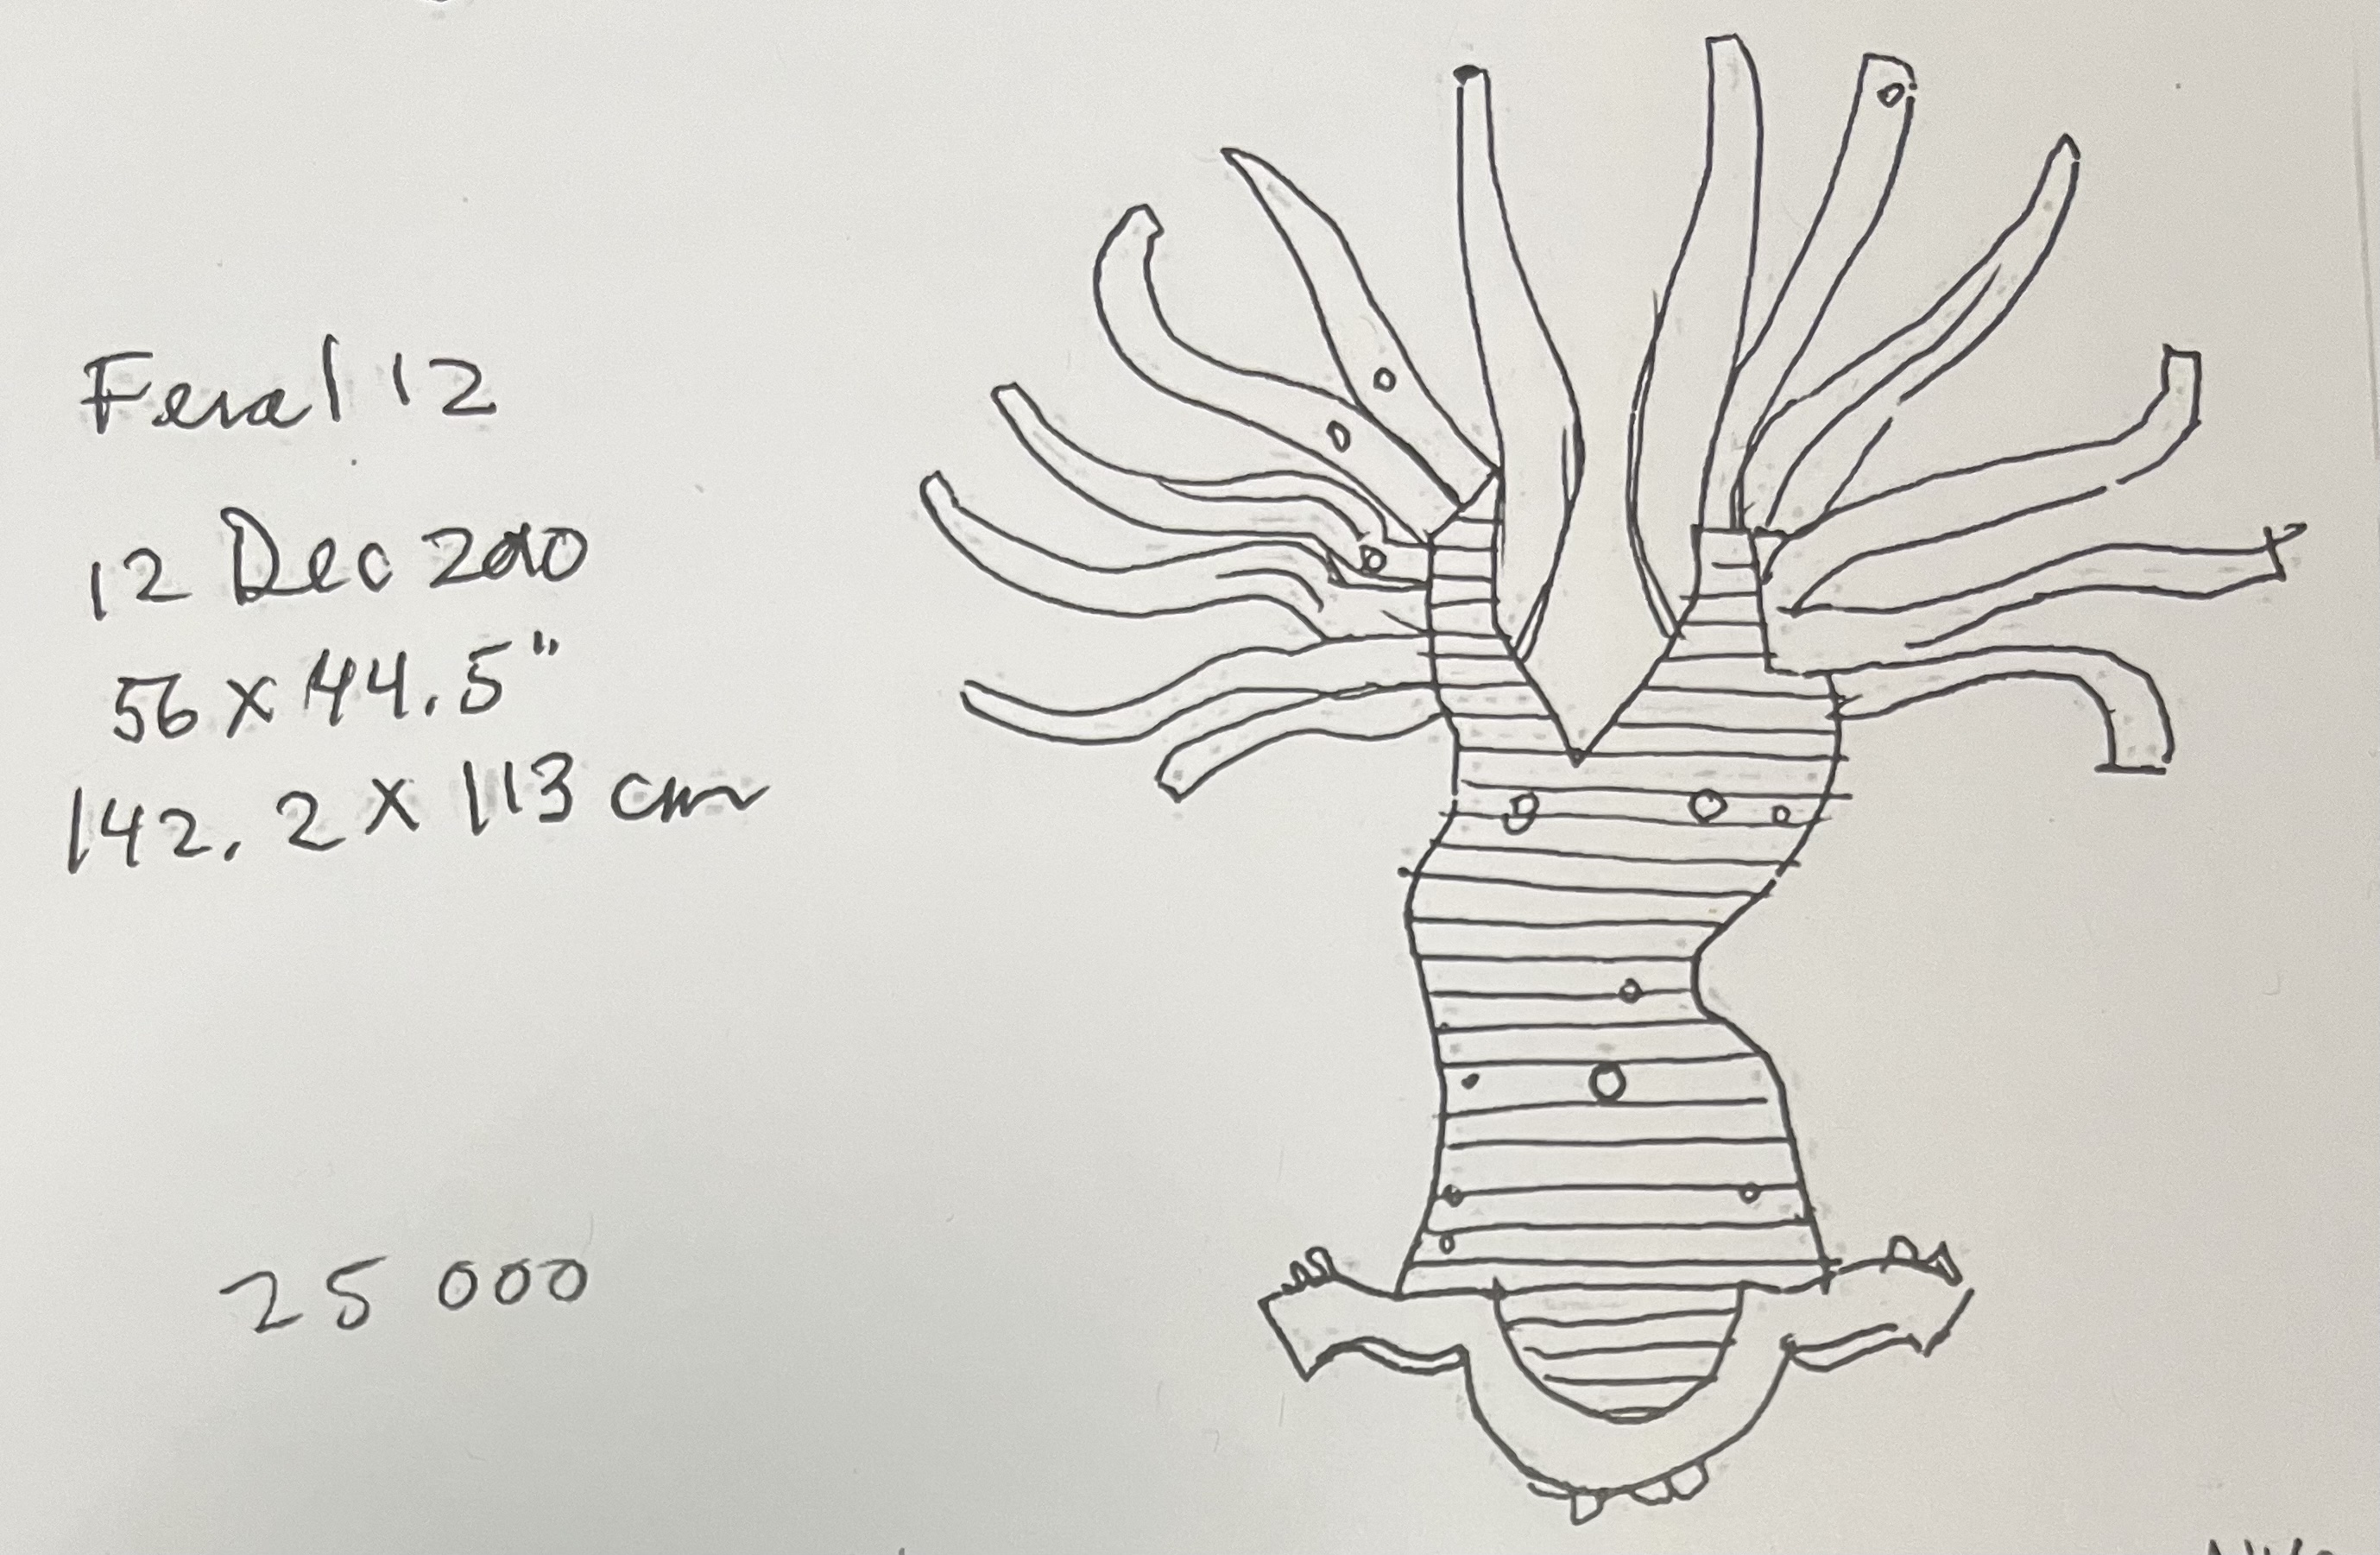 Feral 12
12 Dec
56 x 44.5"
142.2 x 113 cm
25 000